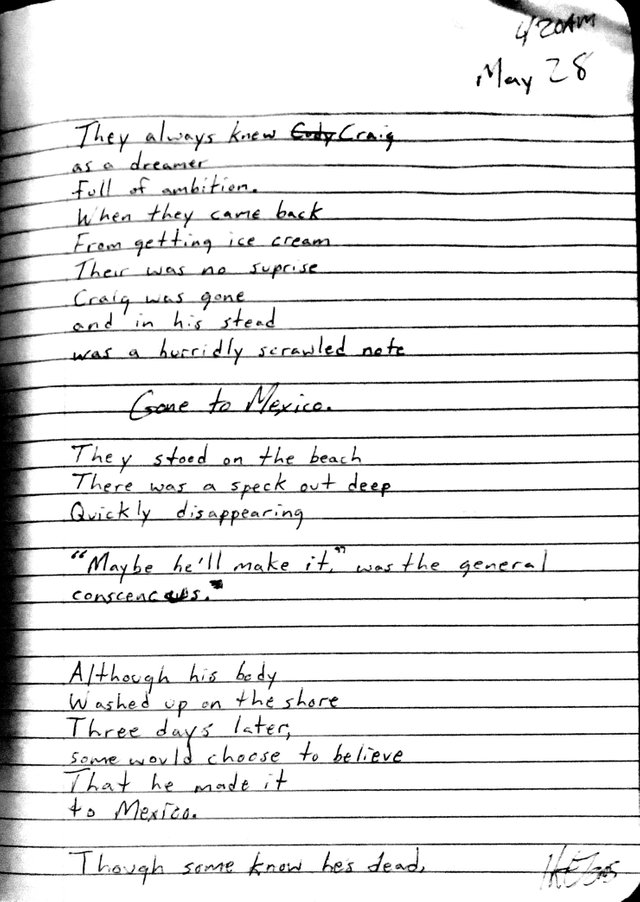 4/20AM
May 28
They always knew Cody Craig
as a dreamer
full of ambition.
When they came back
From getting ice cream
Their was no suprise
Craig was gone
and in his stead
was a hurridly scrawled note
Gone to Mexico.
They stood on the beach
There was a speck out deep
Quickly disappearing
"Maybe he'll make it," was the general
conscencus."
Although his body
Washed up on the shore
Three days later,
some would choose to believe
That he made it
to Mexico.
Though some know hes dead.